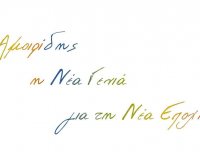 Αμοιρίδης
η Νέα Γενιά
για τη Νέα Εποχή